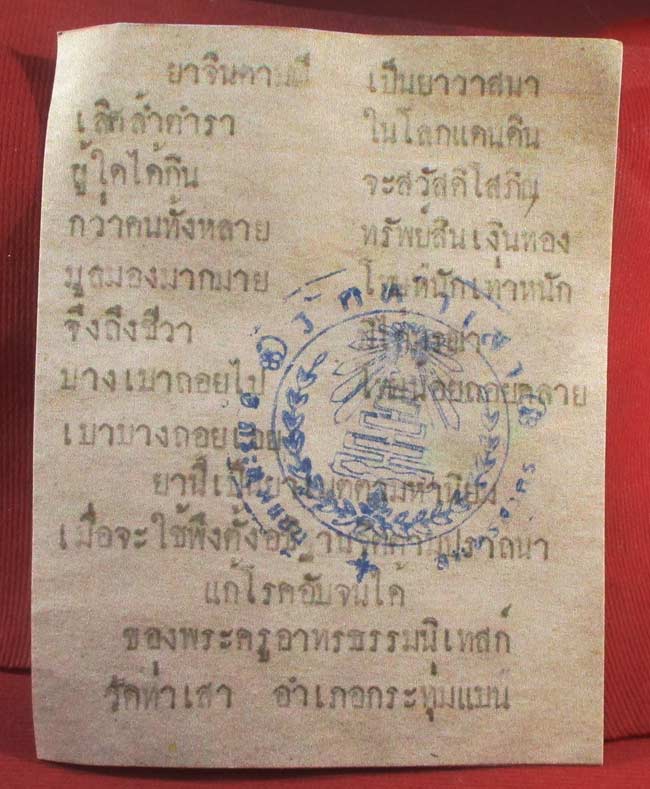 ยาจินดามณี เป็นยาวาสนา
เลิศล้ำตำรา ในโลกแดนดิน
ผู้ใดได้กิน จะสวัสดิโสภิณ
กว่าคนทั้งหลาย ทรัพย์สินเงินทอง
มูลมองมากมาย โทษหนักเท่าหนัก
จึงถึงชีวา
บางเบาถอยไป โทษน้อยถอยคลาย
เบาบางถอยเอย
ยานี้เป็นยาเมตตามหานิยม
เมื่อจะใช้พึงตั้งอธิษฐานจิตตามปราถนา
แก้โรคอับจนได้
ของพระครูอาทรธรรมนิเทสก์
วัดท่าเสา อำเภอกระทุ่มแบน
วัดท่าเสา